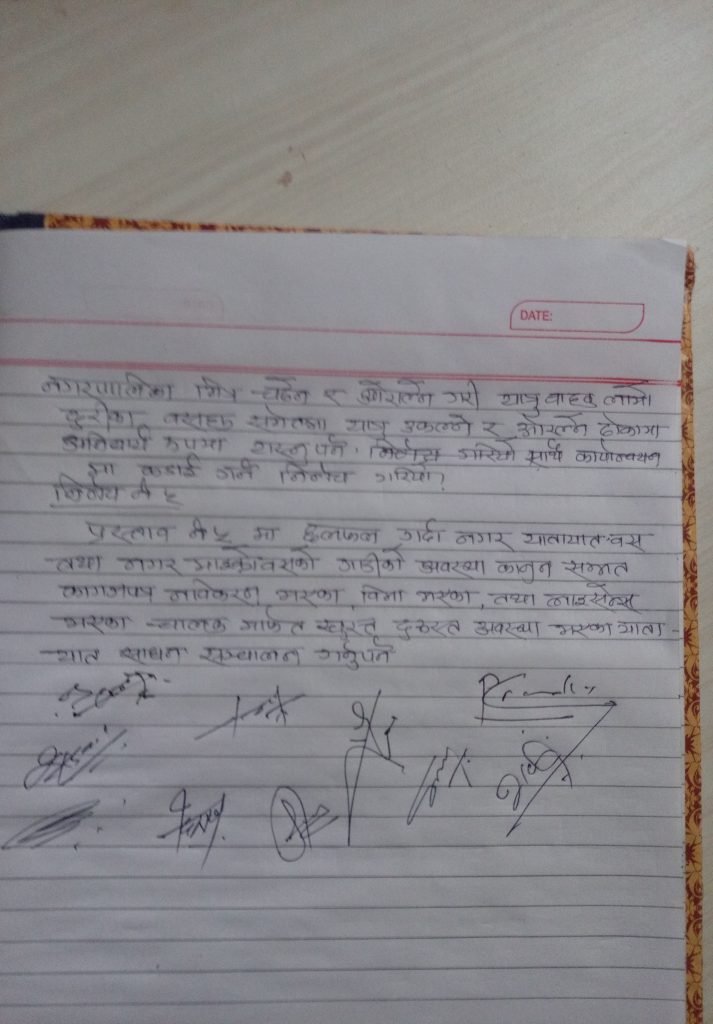 DATE:
नगरपालिका भित्र चढ्न र ओराल्ने गरी यात्रु वाहक लामो
दुरीका बसहरु यात्रु उकाल्ने र ओराल्ने ढोकामा
अनिवार्य रुपमा पर्ने निर्णय गरियो साथै कार्यान्वयन
मा कडाई गर्ने निर्णय गरियो।
निर्णय नं ५
प्रस्ताव नं ५ मा छलफल गर्दा नगर यातायात बस
तथा नगर माइक्रोबसको गाडीको अवस्था कानुन सम्मत
कागजपत्र नविकरण भएका, विमा भएका, तथा लाइसेन्स
भएका चालक मार्फत चुस्त दुरुस्त अवस्था भएका याता-
यात साधन सञ्चालन गर्नुपर्ने